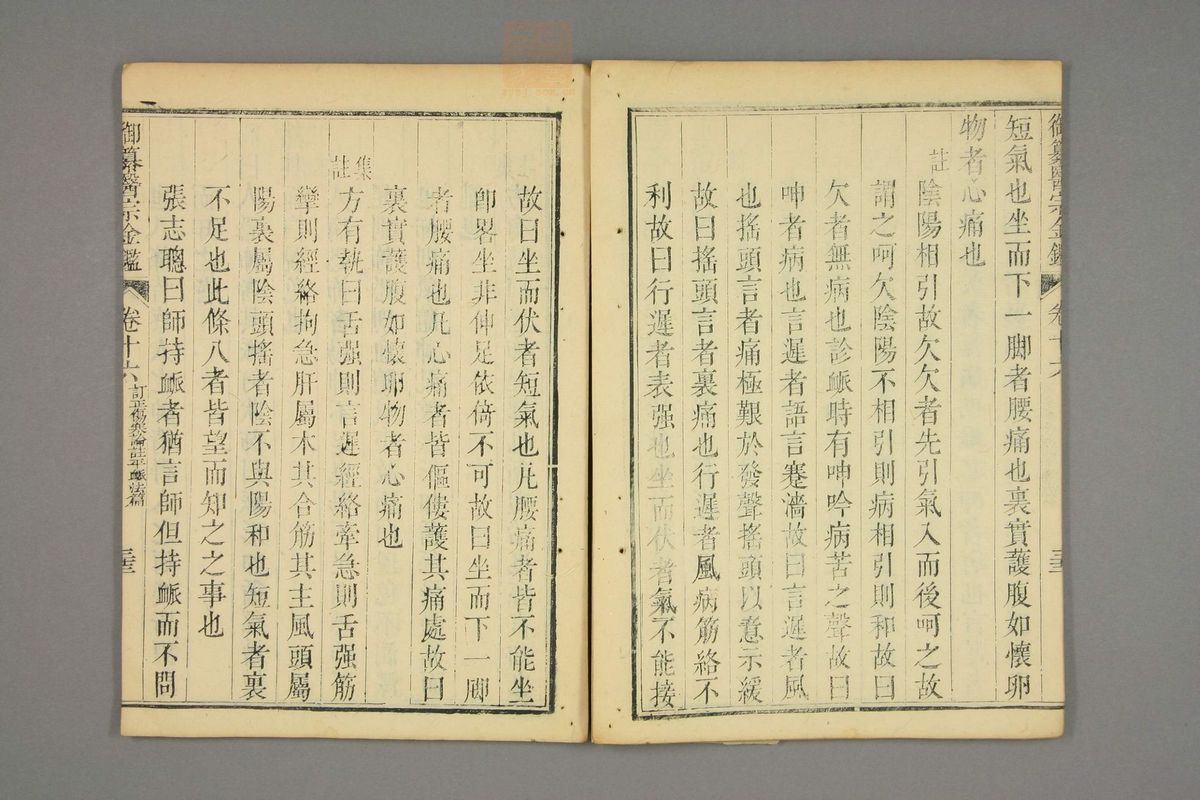 御纂醫宗金鑑
卷十六
三三
短氣也坐而下一脚者腰痛也裏實護腹如懷卵
物者心痛也
註
陰陽相引故欠欠者先引氣入而後呵之故
謂之呵欠陰陽不相引則病相引則和故曰
欠者無病也診脈時有呻吟病苦之聲故曰
呻者病也言遲者語言蹇濇故曰言遲者風
也搖頭言者痛極艱於發聲搖頭以意示緩
故曰搖頭言者裏痛也行遲者風病筋絡不
利故曰行遲者表强也坐而伏者氣不能接
故曰坐而伏者短氣也凡腰痛者皆不能坐
卽畧坐非伸足依倚不可故曰坐而下一脚
者腰痛也凡心痛者皆傴僂護其痛處故曰
裏實護腹如懷卵物者心痛也
集註
方有執曰舌强則言遲經絡牽急則舌强筋
攣則經絡拘急肝屬木其合筋其主風頭屬
陽裏屬陰頭搖者陰不與陽和也短氣者裏
不足也此條八者皆望而知之之事也
張志聰曰師持脈者猶言師但持脈而不問
御纂醫宗金鑑
卷十六
訂正傷寒論註平脈法篇
三三